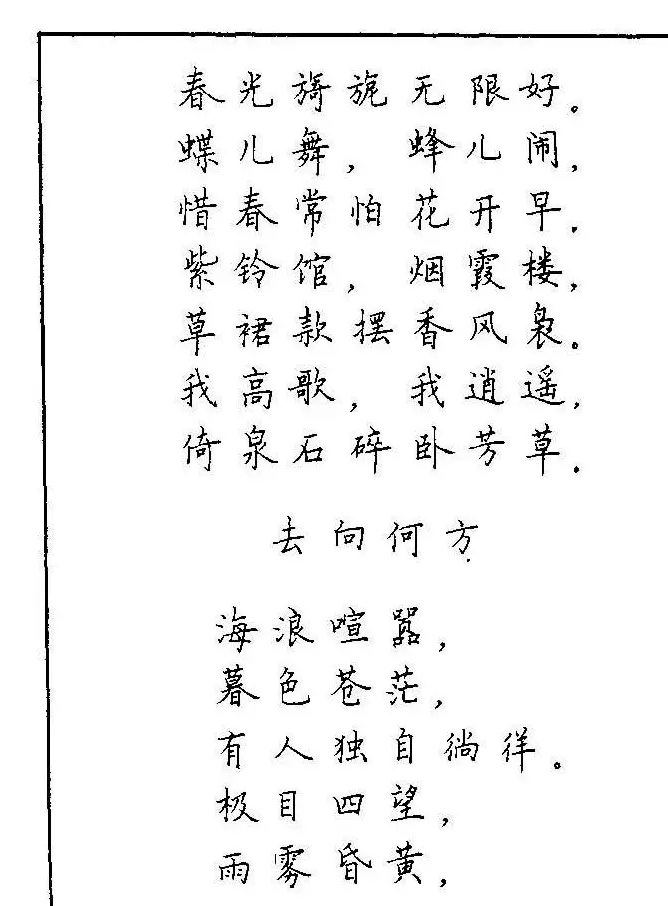 春光旖旎无限好。
蝶儿舞，蜂儿闹，
惜春常怕花开早.
紫铃馆，烟霞楼，
草裙款摆香风袅。
我高歌，我逍遥，
倚泉石碎卧芳草.
去向何方
海浪喧嚣，
暮色苍茫，
有人独自徜徉。
极目四望，
雨雾昏黄，